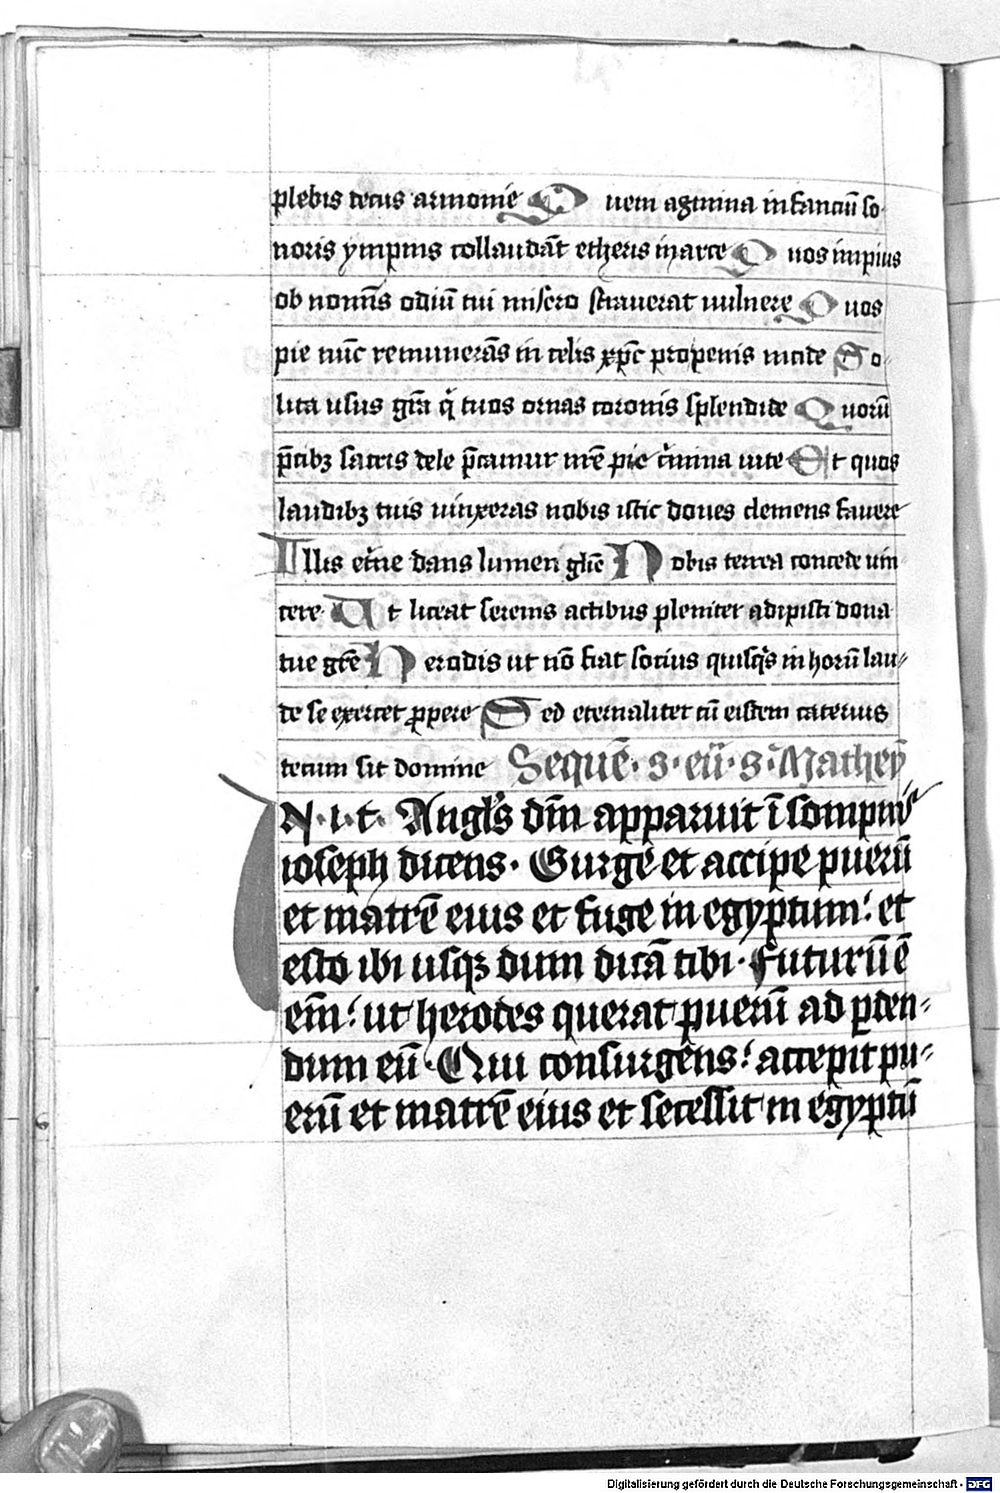 plebis tecus armonie Quem agmina infanciũ so-
noris ympnis collaudãt etheris in arce Quos impius
ob nominis odiũ tui misero straverat vulnere Quos
pie nũc remunerãs in celis xp̃c propenis nitide So-
lita usus gr̃a q̃ tuos ornas coronis splendide Quorũ
p̃cibꝫ sacris dele p̃camur nr̃e pie c̃mina vite Et quos
laudibꝫ tuis iũxeras nobis istic doues clemens favere
Illis et̃ne dans lumen gl̃ie Nobis terrea concede vin
cere Ut liceat serenis actibus pleniter adipisci dona
tue gr̃e Herodis ut nõ fiat socius quisq̃s in horũ lau-
de se exercet ꝓpere Sed eternaliter cũ eisdem catervis
tecum sit domine Sequẽ. s. eũ. s. Mathey
N. i. t. Angl̃s dñi apparuit ĩ sompnis
ioseph dicens. Surge et accipe puerũ
et matrẽ eius et fuge in egyptum: et
esto ibi usqꝫ dum dicã tibi. Futurũ ẽ
em̃: ut herodes querat puerũ ad ꝑden-
dum eũ. Qui consurgens: accepit pu-
erũ et matrẽ eius et secessit in egyptũ
Digitalisierung gefördert durch die Deutsche Forschungsgemeinschaft - DFG